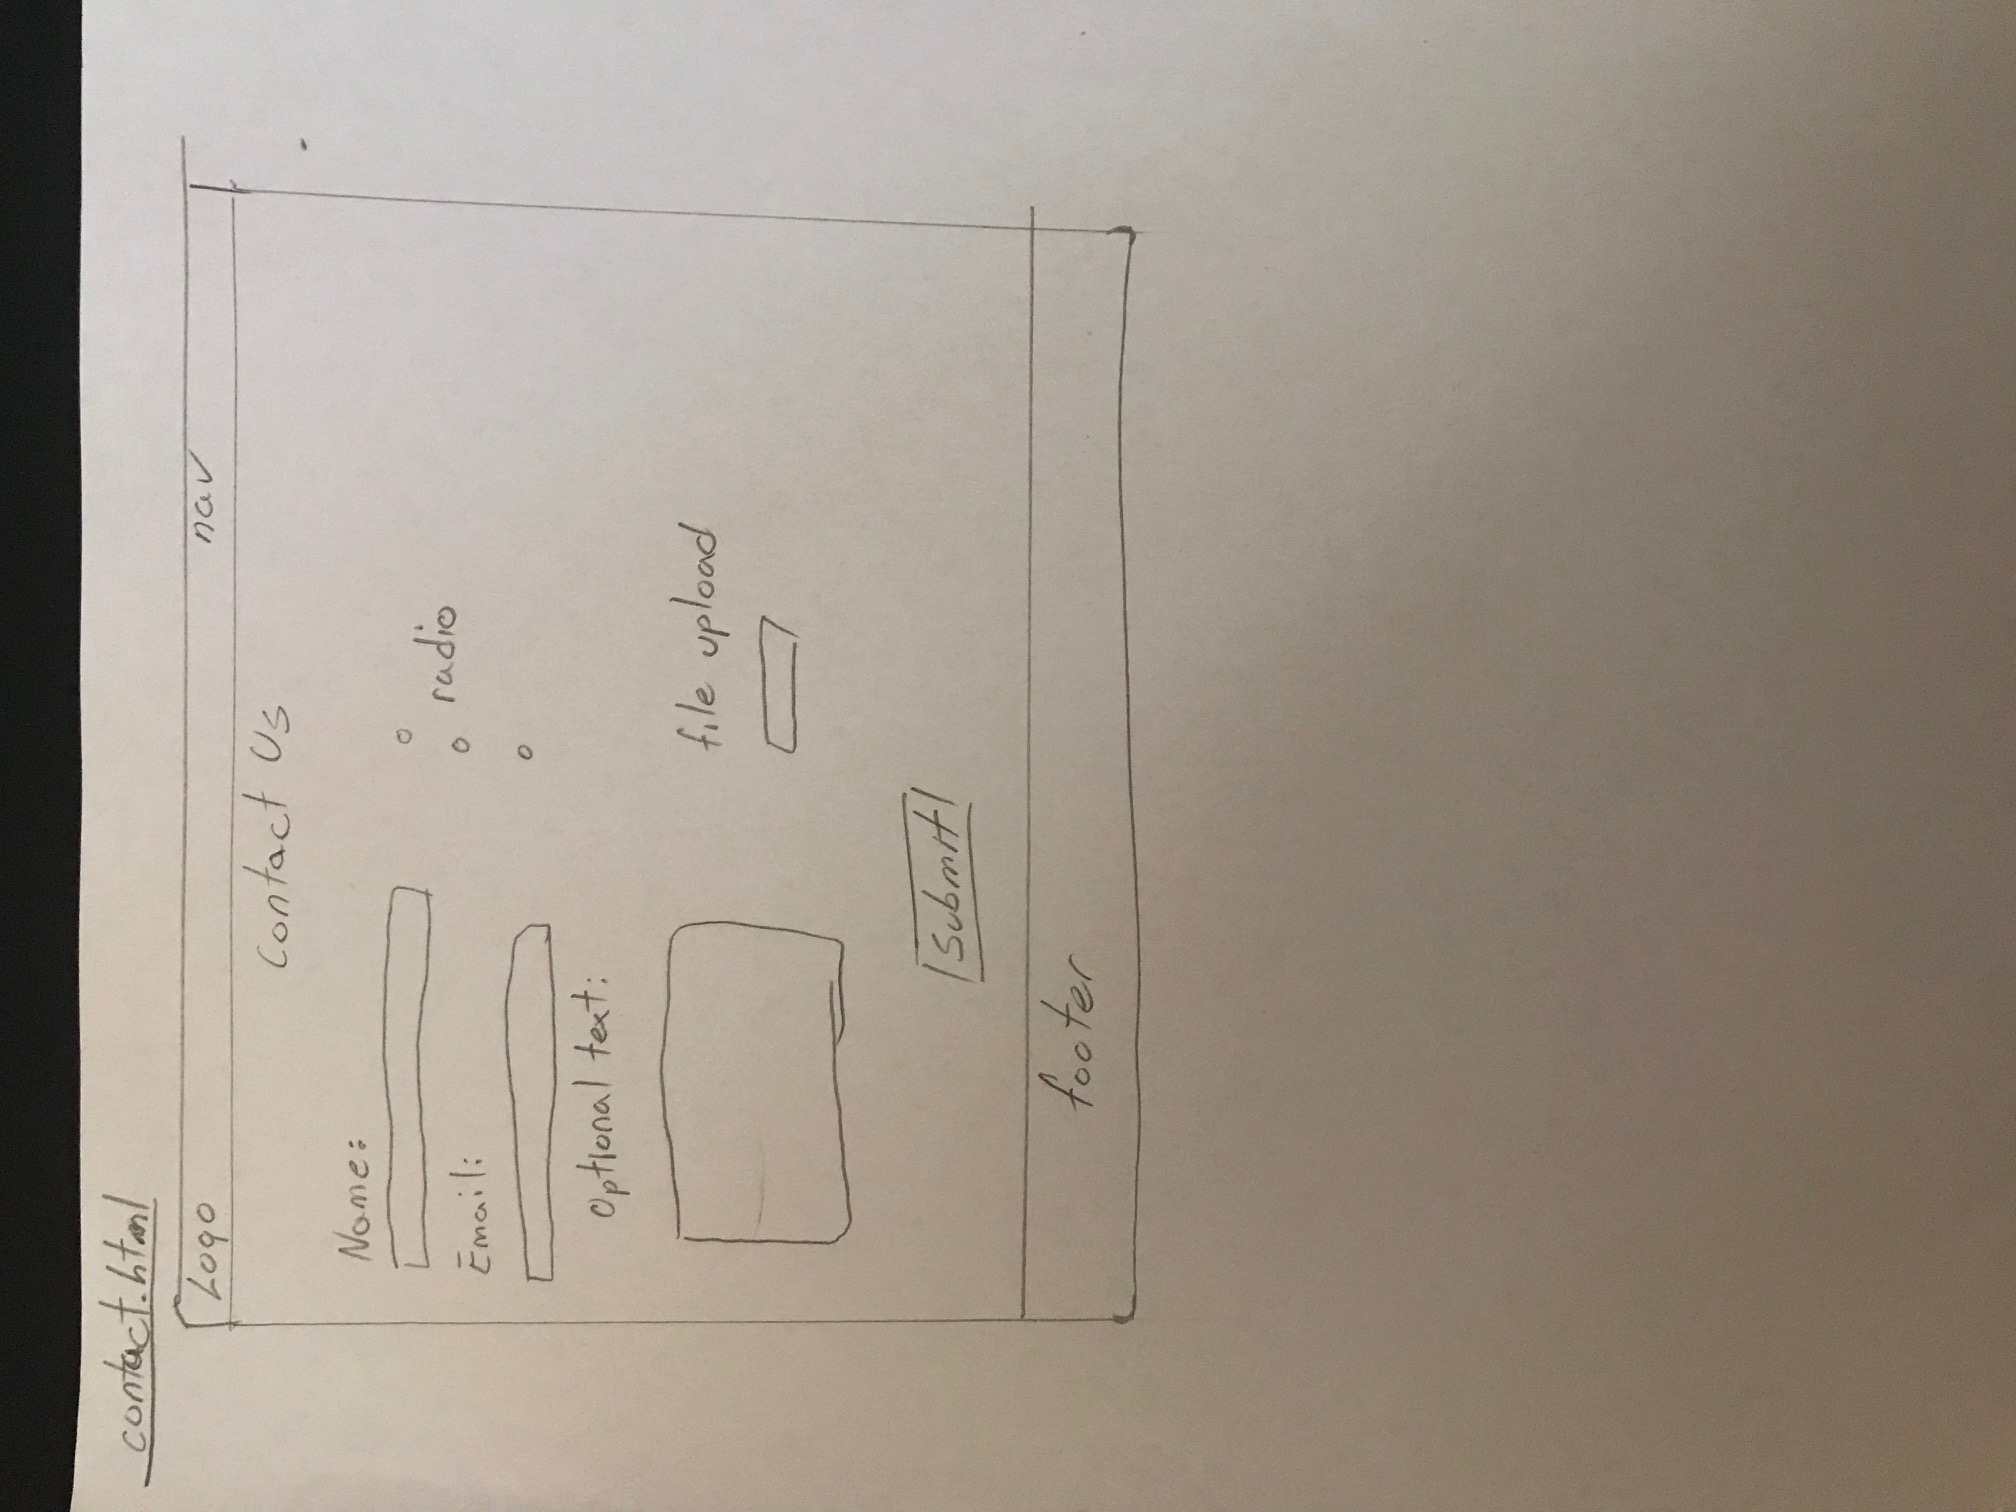 contact.html
Logo nav
Contact Us
Name:
radio
Email:
Optional text:
file upload
Submit
footer